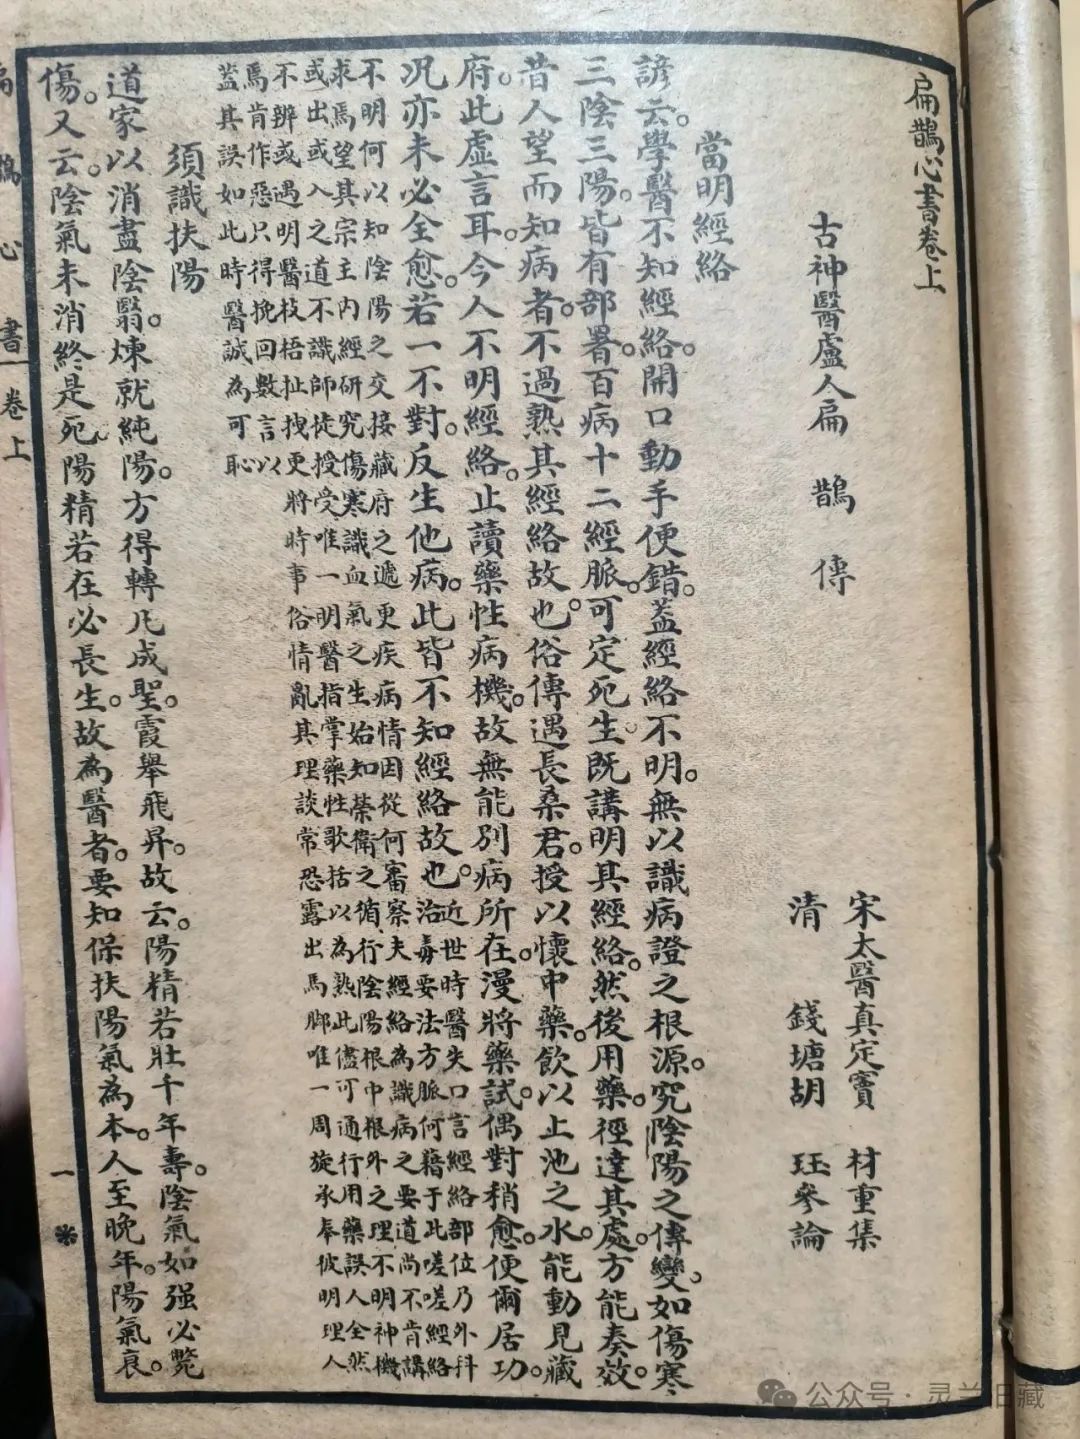 扁鵲心書卷上
古神醫盧人扁 鵲 傳
宋太醫真定竇 材重集
清 錢塘胡 珏參論
當明經絡
諺云。學醫不知經絡。開口動手便錯。蓋經絡不明。無以識病證之根源。究陰陽之傳變。如傷寒
三陰三陽。皆有部署。百病十二經脈。可定死生。既講明其經絡。然後用藥。徑達其處。方能奏效。
昔人望而知病者。不過熟其經絡故也。俗傳遇長桑君。授以懷中藥。飲以上池之水。能動見藏
府。此虛言耳。今人不明經絡。止讀藥性病機。故無能別病所在。漫將藥試。偶對稍愈。便爾居功。
況亦未必全愈。若一不對。反生他病。此皆不知經絡故也。
近世時醫失口言經絡部位乃外科
治毒要法方脈何藉于此嗟嗟經絡
不明何以知陰陽之交接藏府之遞更疾病情因從何審察夫經絡為識病之要道尚不肯講
求焉望其宗主內經研究傷寒識血氣之生始知榮衛之循行陰陽根中根外之理不明神機
或出或入之道不識師徒授受唯一明醫指掌藥性歌括以為熟此儘可通行用藥誤人全然
不辨或遇明醫枝梧扯拽更將時事俗情亂其理談常恐露出馬脚唯一周旋承奉彼明理人
焉肯作惡只得挽回數言以
蓋其誤如此時醫誠為可恥
須識扶陽
道家以消盡陰翳。煉就純陽。方得轉凡成聖。霞舉飛昇。故云。陽精若壯千年壽。陰氣如强必斃
傷。又云。陰氣未消終是死陽精若在必長生。故為醫者。要知保扶陽氣為本。人至晚年。陽氣衰。
扁鵲心書 卷上 一
公众号·灵兰旧藏